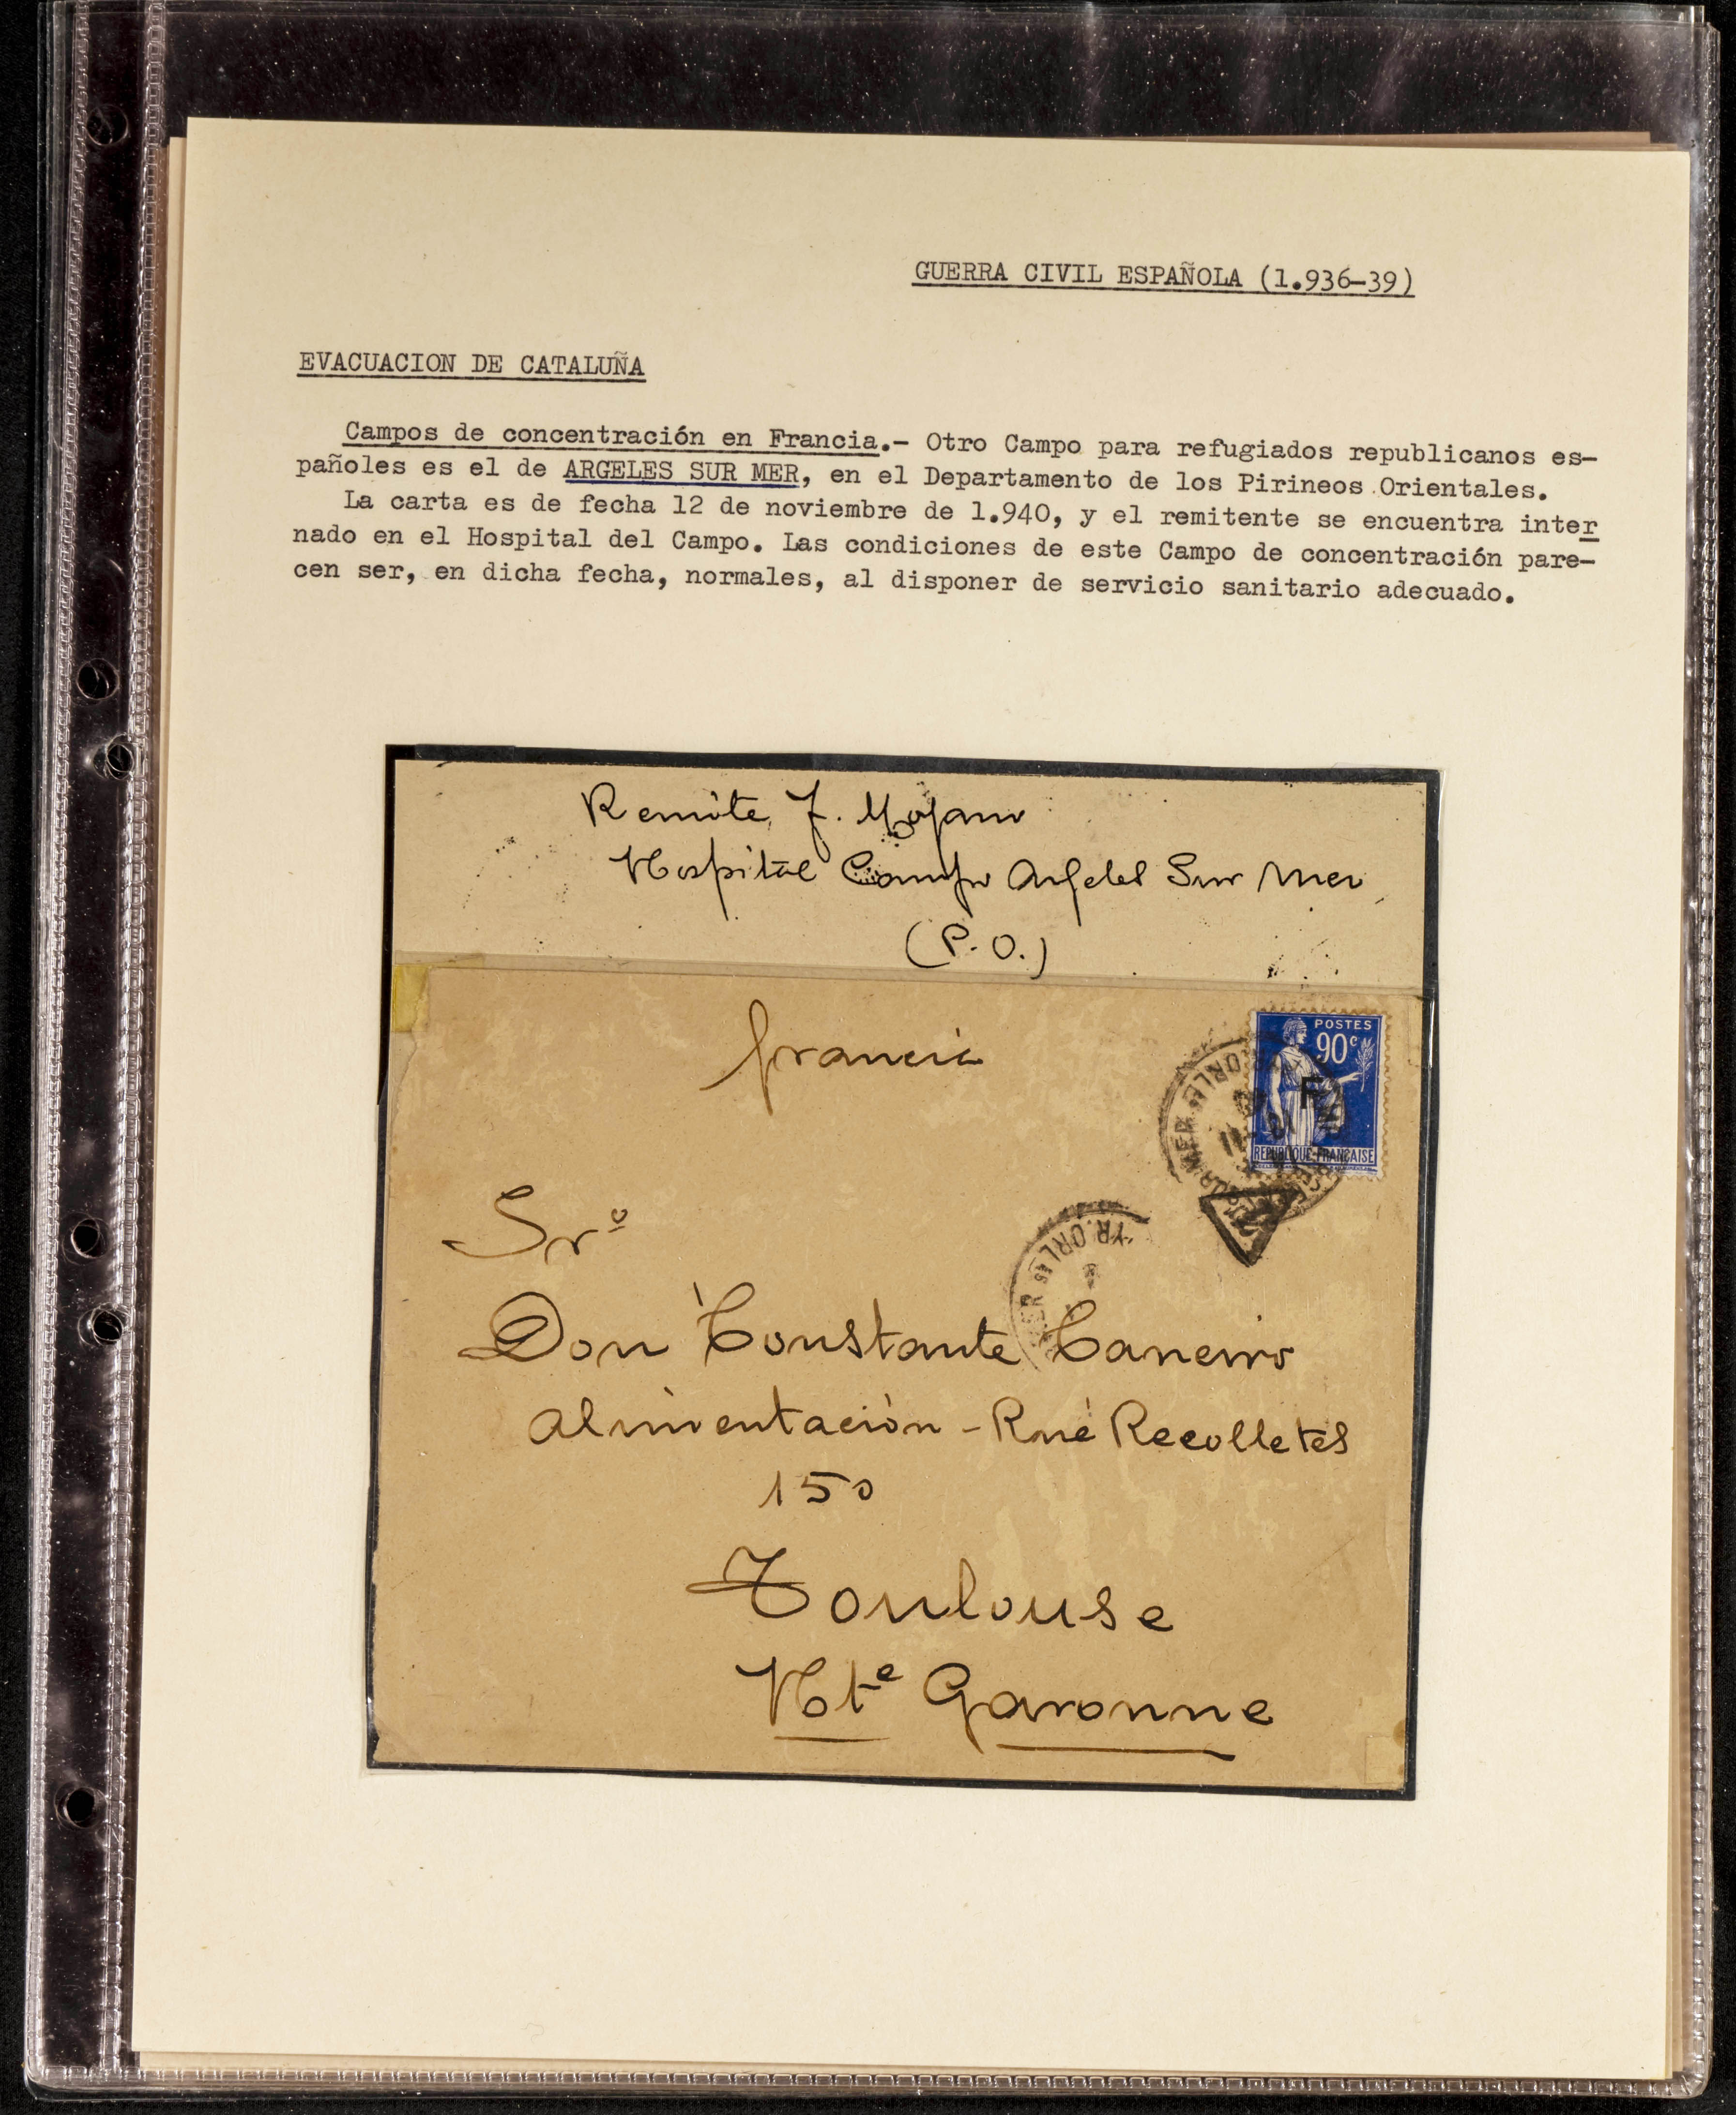 GUERRA CIVIL ESPAÑOLA (1.936-39)
EVACUACION DE CATALUÑA
Campos de concentración en Francia.- Otro Campo para refugiados republicanos es-
pañoles es el de ARGELES SUR MER, en el Departamento de los Pirineos Orientales.
La carta es de fecha 12 de noviembre de 1.940, y el remitente se encuentra inter
nado en el Hospital del Campo. Las condiciones de este Campo de concentración pare-
cen ser, en dicha fecha, normales, al disponer de servicio sanitario adecuado.
Remite, J. Moyano
Hospital Campo Argeles Sur Mer
(P. O.)
francia
POSTES
90c
F
REPUBLIQUE FRANÇAISE
SUR MER
YR. ORLES
Sro
Don Constante Caneiro
Alimentación - Rué Recolletes
150
Toulouse
Hte Garonne